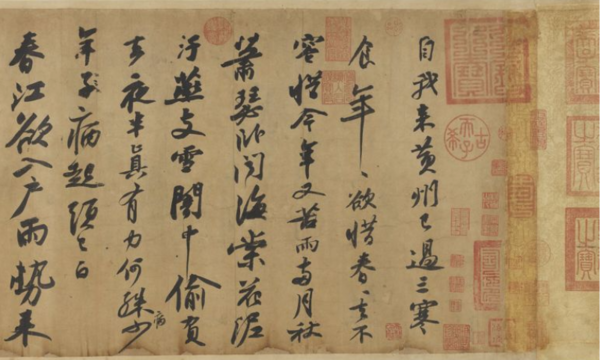 自我來黃州已過三寒
食年〻欲惜春〻去不
容惜今年又苦雨兩月秋
蕭瑟臥聞海棠花泥
汙燕支雪闇中偷負
去夜半真有力何殊少病
年子病起頭已白
春江欲入戶雨勢來
古希天子